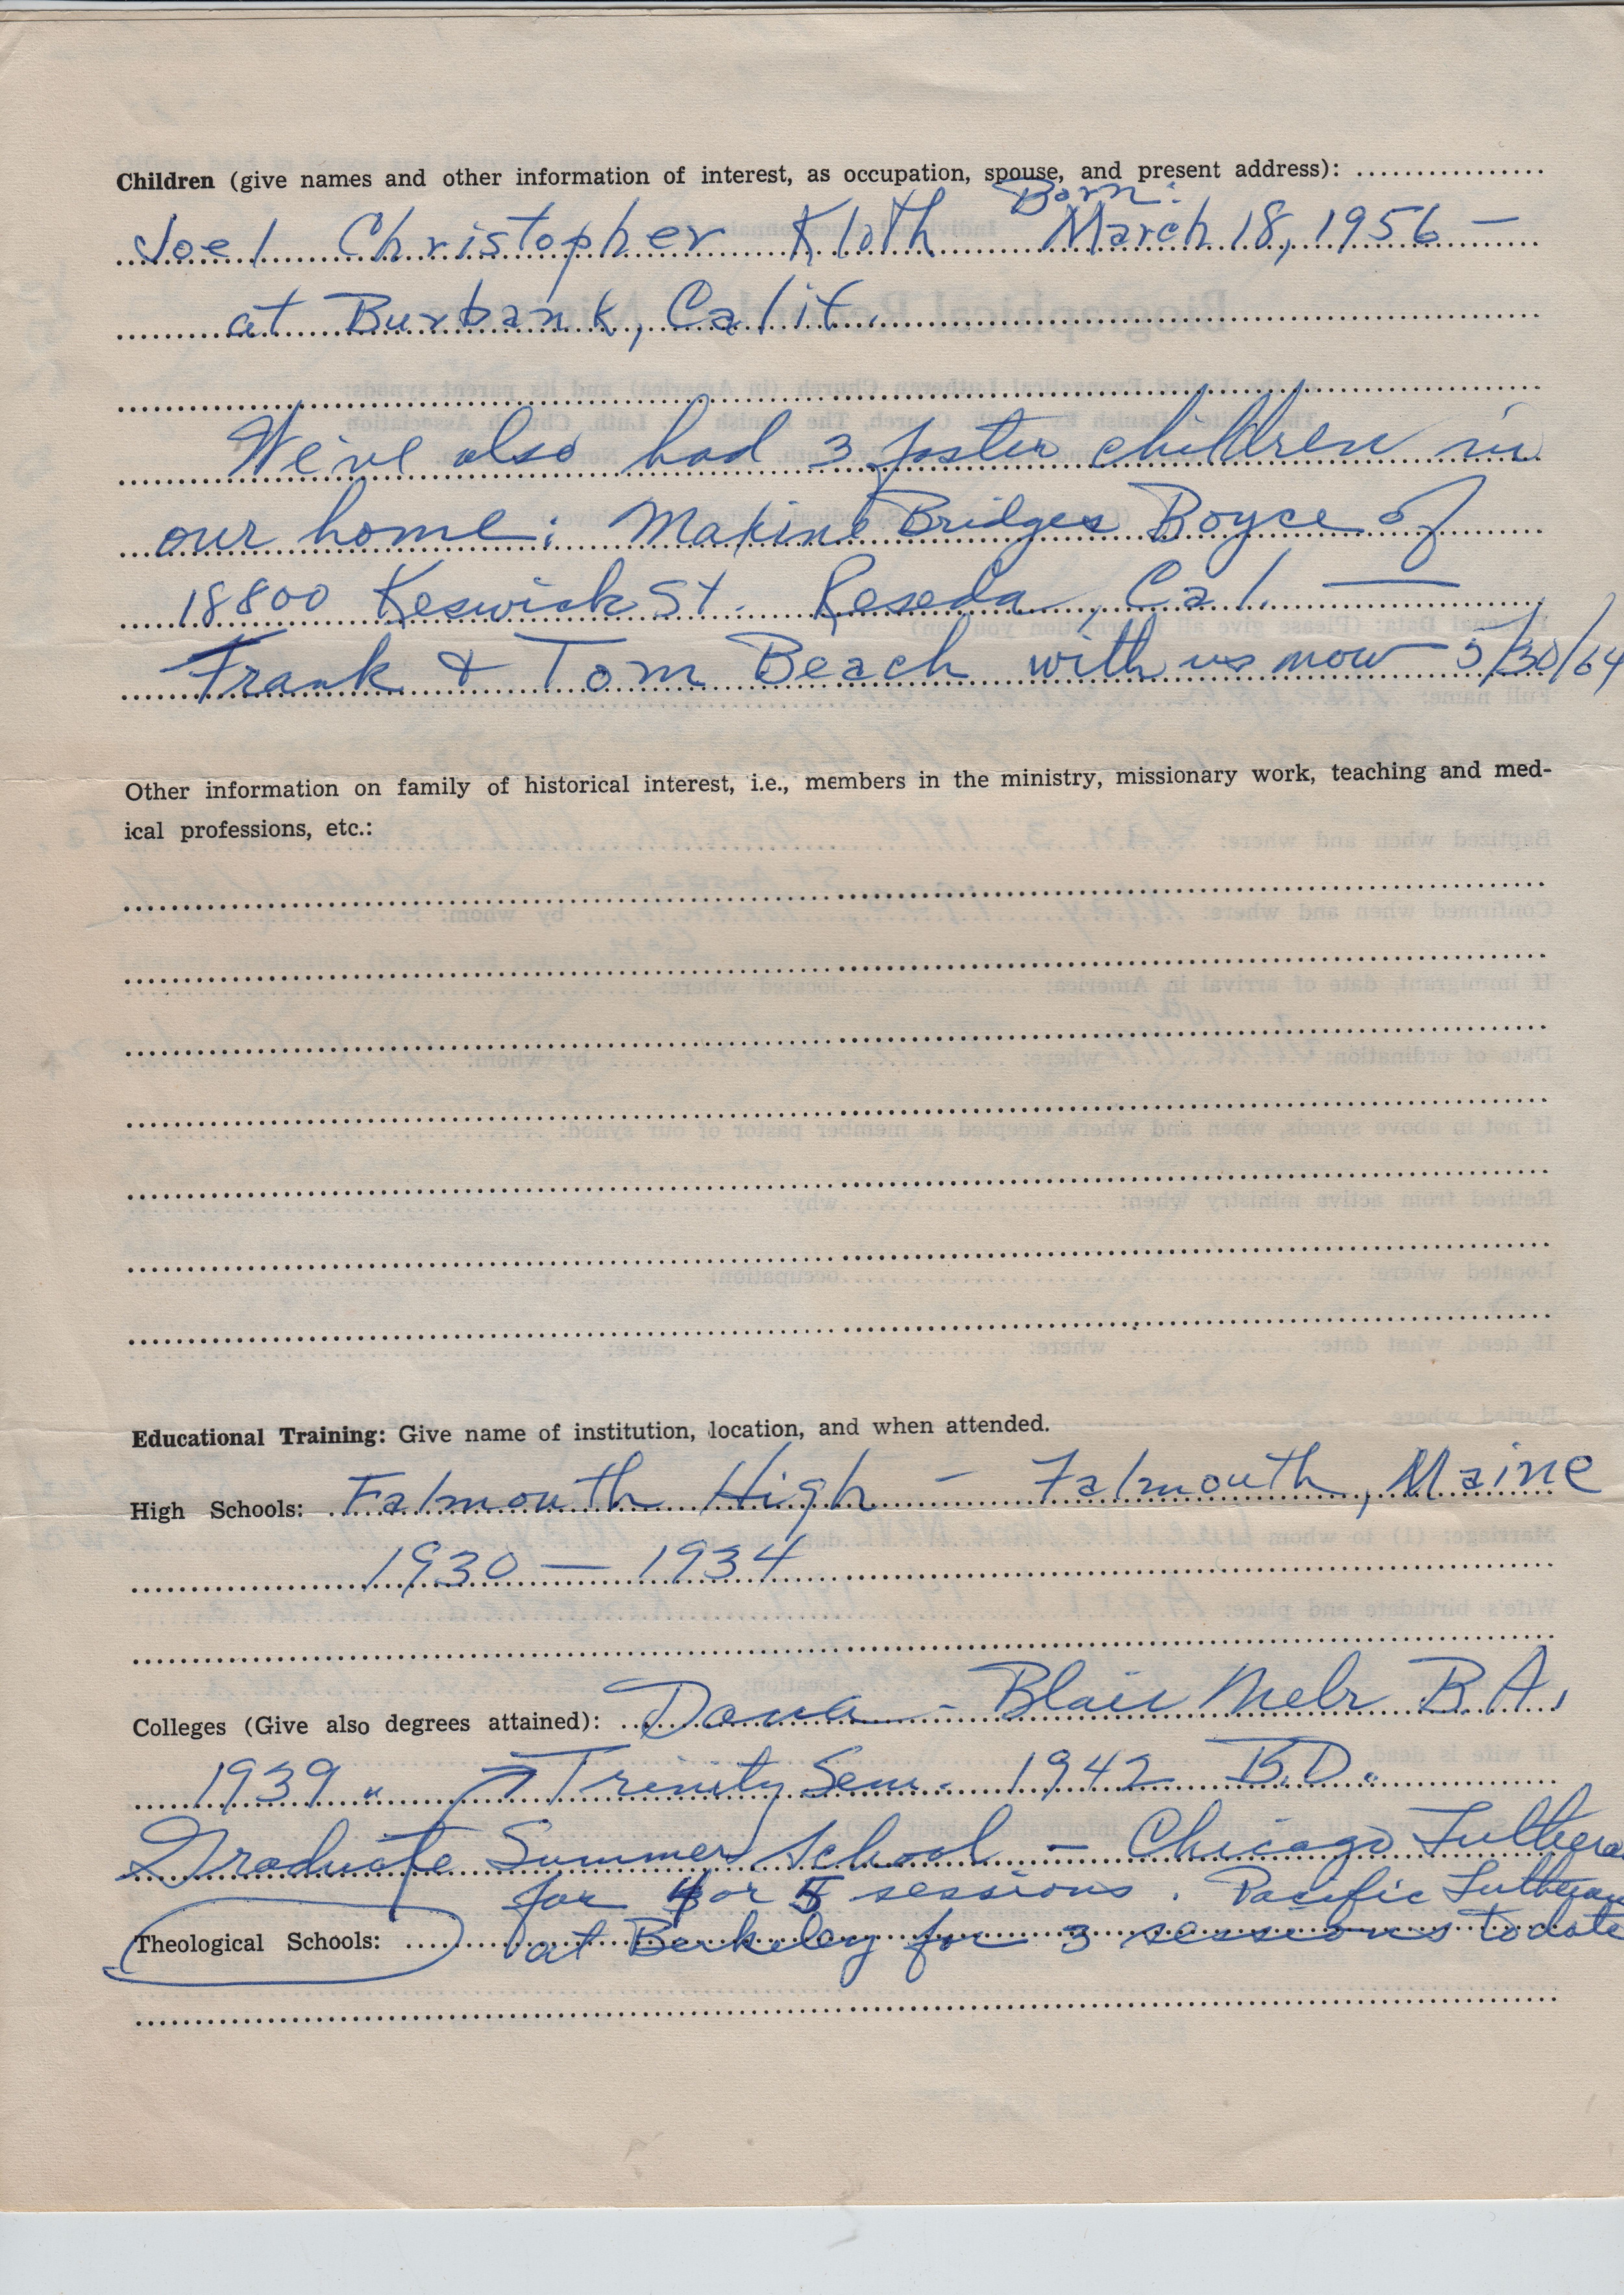 Children (give names and other information of interest, as occupation, spouse, and present address): ................
Born:
Joel Christopher Kloth March 18, 1956 —
at Burbank, Calif.
We've also had 3 foster children in
our home: Maxine Bridges Boyce of
18800 Keswick St. Reseda, Cal. —
Frank & Tom Beach with us now 5/30/64
Other information on family of historical interest, i.e., members in the ministry, missionary work, teaching and med-
ical professions, etc.:
Educational Training: Give name of institution, location, and when attended.
High Schools: Falmouth High — Falmouth, Maine
1930 — 1934
Colleges (Give also degrees attained): Dana - Blair Nebr B.A.,
1939. → Trinity Sem. 1942 B.D.
Graduate Summer School — Chicago Lutheran
for 4 or 5 sessions. Pacific Lutheran
Theological Schools: at Berkeley for 3 sessions to date